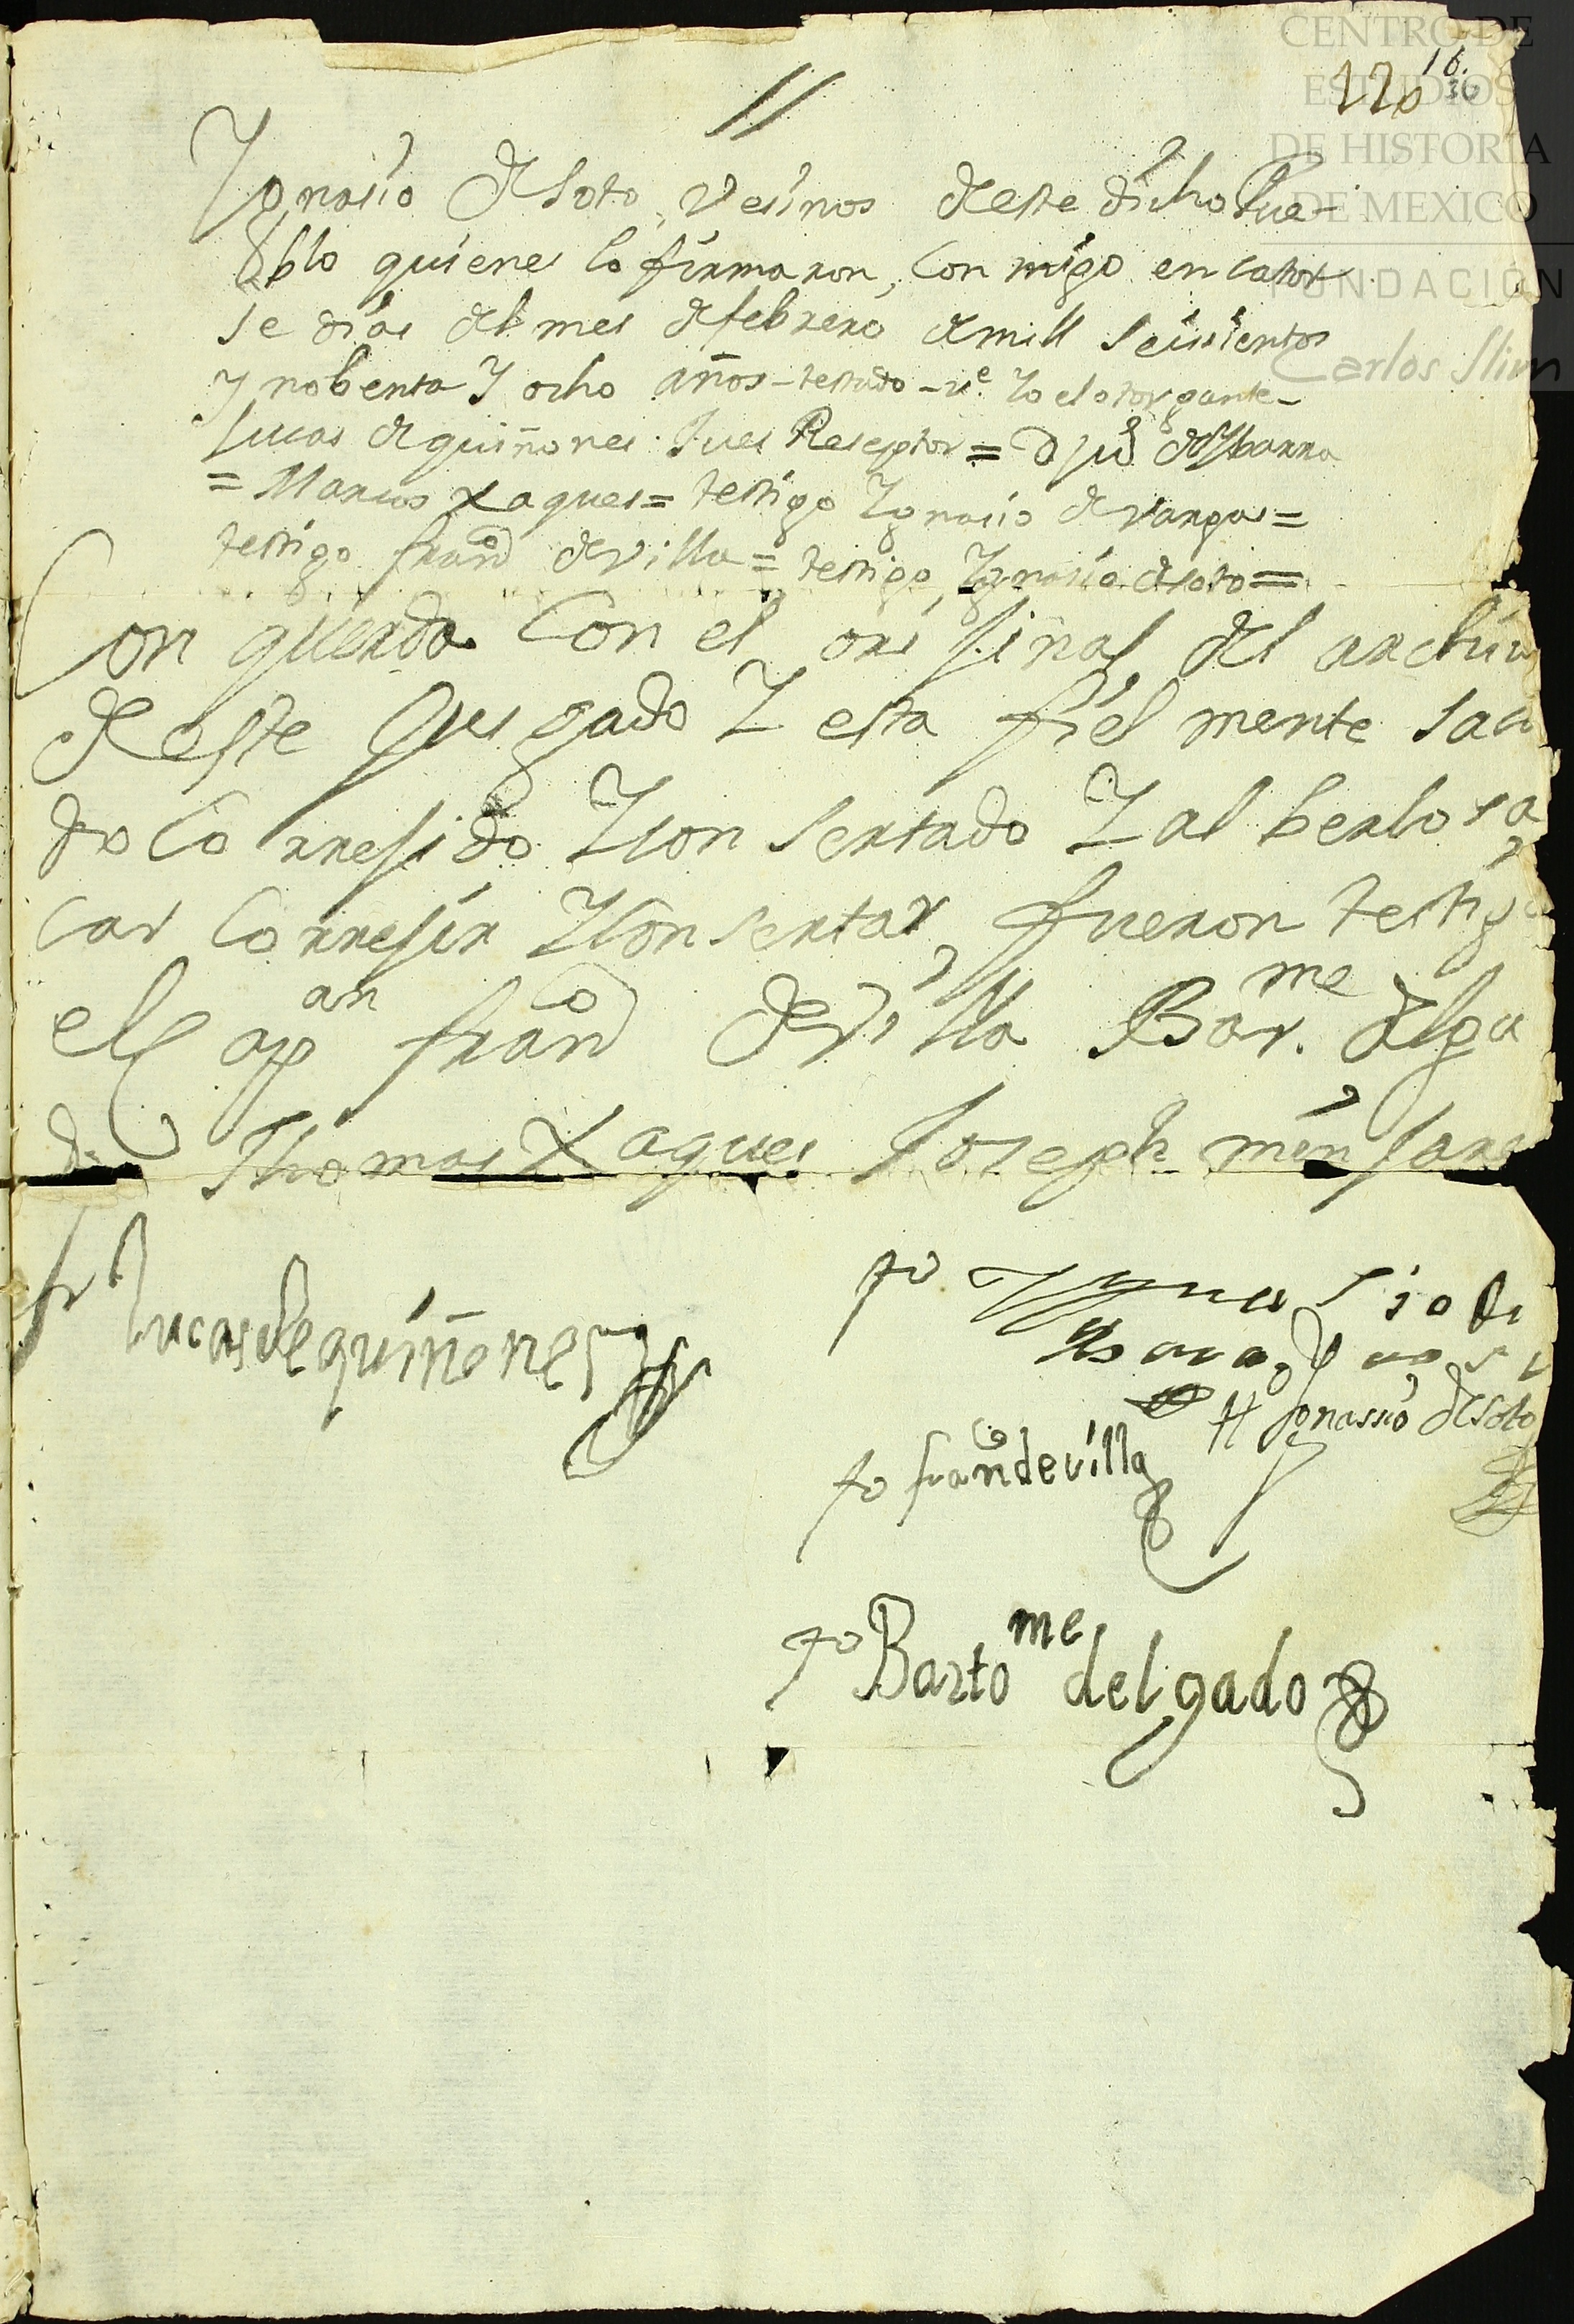 CENTRO DE
ESTUDIOS
DE HISTORIA
DE MEXICO
FUNDACIÓN
Carlos Slim
16.
Ygnasio de soto, Vesinos deste dicho Pue-
blo quienes lo firmaron, Con migo en cator
se dias del mes de febrero de mill seisientos
y nobenta Y ocho años - testado - Yo el otorgante -
lucas de quiñones Jues Reseptor = de Ybarra
= Marcos Xaques = testigo Ygnasio de vargas =
testigo franco de villa = testigo, Ygnasio de soto =
Con querda Con el orisinal del archiv
deste Jusgado Y esta fiel mente saca
do Corresido Y Con sertado Y al berlo sa
car Corresir Y Con sertar, fueron testig
el Capan franco de Villa Bar.me delga
do Thomas Xaques Joseph
lucas de quiñones
to Ygnasio de
to Ygnassio de soto
to franco de villa
to Bartome delgado